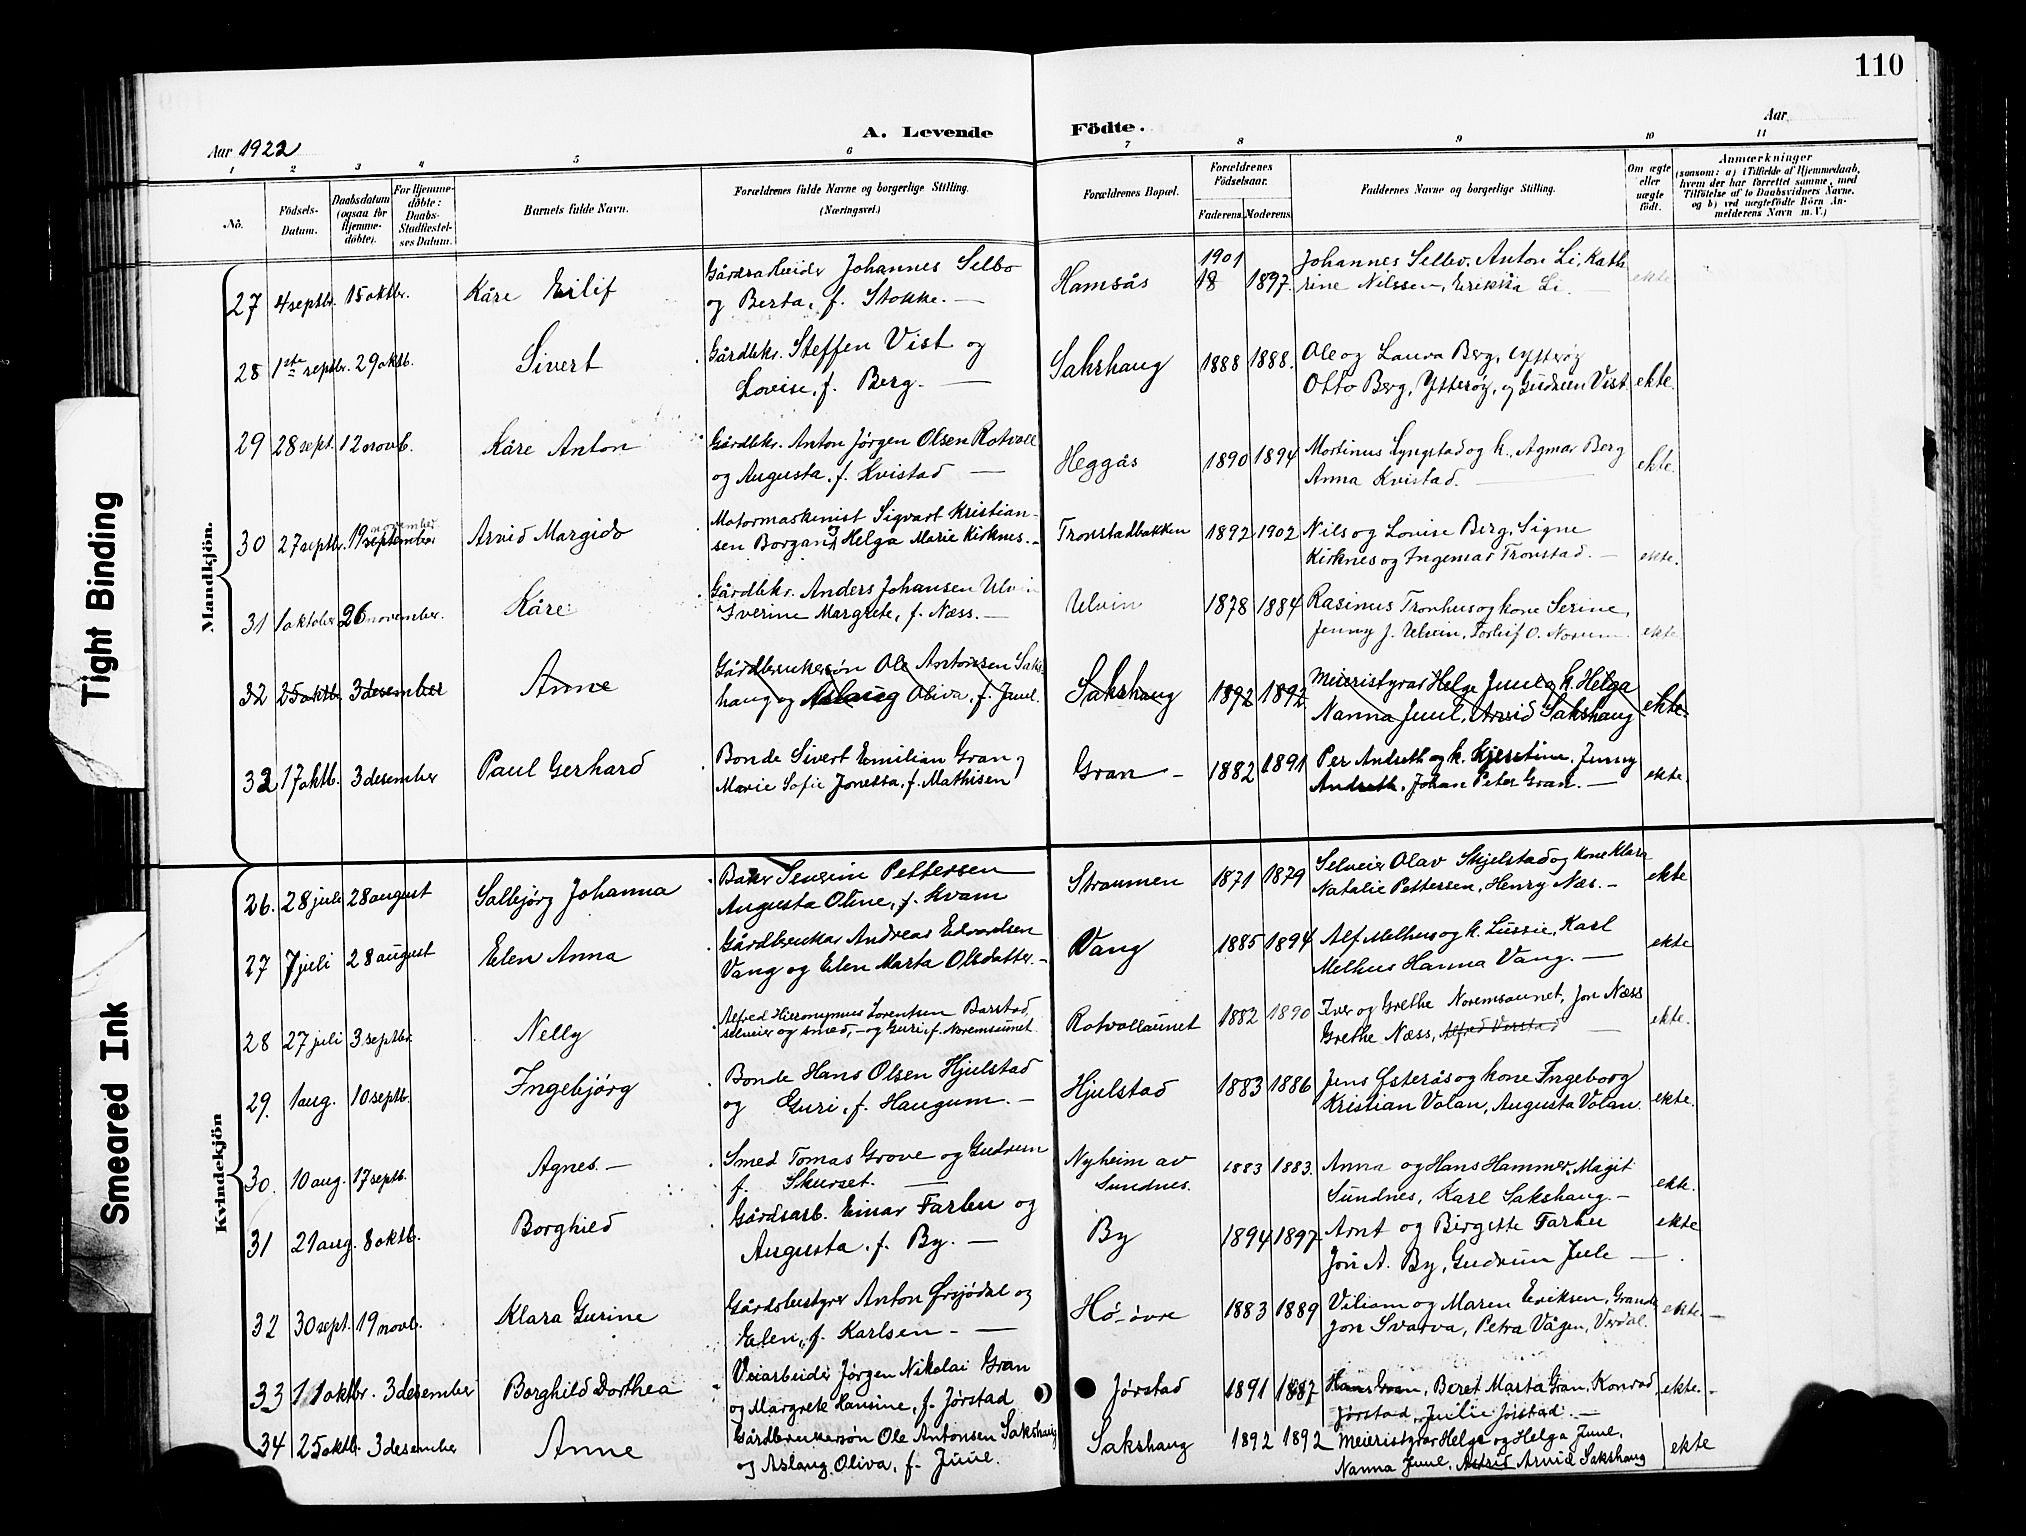 110
Aar 1922
A. Levende Födte.
Aar
1 2 3 4 5 6 7 8 9 10 11
No.
Födsels-Datum.
Daabsdatum (ogsaa for Hjemme-döbte).
For Hjemme-döbte: Daabs-Stadfæstel-ses Datum.
Barnets fulde Navn.
Forældrenes fulde Navne og borgerlige Stilling.
(Næringsvei.)
Forældrenes Bopæl.
Forældrenes Födselsaar.
Faderens. Moderens.
Faddernes Navne og borgerlige Stilling.
Om ægte eller uægte födt.
Anmærkninger
(saasom: a) i Tilfælde af Hjemmedaab, hvem der har forrettet samme, med Tilföielse af to Daabsvidners Navne, og b) ved uægtefödte Börn An-melderens Navn m. V.)
Mandkjön.
27 4 septbr. 15 oktbr. Kåre Eilif Gårdsarbeider Johannes Selbo
og Berta, f. Stokke. — Hamsås 1901 18 1897. Johannes Selbo, Anton Li, Kath
rine Nilssen, Erikka Li. — ekte
28 1ste septbr. 29 oktb. Sivert Gårdbkr. Steffen Vist og
Lovise, f. Berg. — Sakshaug 1888 1888. Ole og Laura Berg, Ytterøy
Otto Berg, Ytterøy, og Gudrun Vist. ekte.
29 28 sept. 12 novb. Kåre Anton Gårdbkr. Anton Jørgen Olsen Rotvoll
og Augusta, f. Kvistad — Heggås 1890 1894 Martinus Lyngstad og k., Agmar Berg
Anna Kvistad. — ekte.
30 27 septbr. 19 september november Arvid Margido Motormaskinist Sigvart Kristian-
sen Borgan & Helga Marie Kirknes. — Tronstadbakken 1892 1902 Nils og Lovise Berg, Signe
Kirknes og Ingemar Tronstad. — ekte.
31 1 oktober 26 november. Kåre Gårdbkr. Anders Johansen Ulvin
Iverine Margrete, f. Næss. — Ulvin 1878 1884 Rasinus Tronhus og kone Serine,
Jenny J. Ulvin, Torleif O. Norum. ekte
32 25 oktb. 3 desember Anne Gårdbrukersøn Ole Antonsen Saks
haug og Aslaug Oliva, f. Juul. Sakshaug 1892 1892 Meieristyrar Helge Juul og k. Helga
Nanna Juul, Arvid Sakshaug ekte.
32 17 oktb. 3 desember Paul Gerhard Bonde Sivert Emilian Gran og
Marie Sofie Jonetta, f. Mathisen Gran — 1882 1891 Per Andreth og k. Kjerstine, Jenny
Andreth, Johan Peter Gran. — ekte.
Kvindekjön
26. 28 juli 28 august Salbjørg Johanna Baker Severin Pettersen
Augusta Oline, f. Kvam Straumen 1871 1879 Selveier Olav Skjelstad og kone Klara
Natalie Pettersen, Henry Næs. — ekte
27 7 juli 28 august Elen Anna Gårdbruker Andreas Edvardsen
Vang og Elen Marta Olsdatter. — Vang 1885 1894 Alf Melhus og k. Lussie, Karl
Melhus Hanna Vang. — ekte
28 27 juli 3 septbr. Nelly Alfred Hieronymus Lorentsen Barstad,
selveier og smed, — og Guri, f. Noremsaunet. Rotvollaunet 1882 1890 Iver og Grethe Noremsaunet, Jon Næss
Grethe Næss, Alfred Varstad — ekte.
29. 1 aug. 10 septb. Ingebjørg Bonde Hans Olsen Hjulstad
og Guri, f. Haugum. — Hjulstad 1883 1886 Jens Østerås og kone Ingeborg
Kristian Volan, Augusta Volan. ekte.
30. 10 aug. 17 septb. Agnes. — Smed Tomas Grove og Gudrun
f. Skurset. — Nyheim av Sundnes. 1883 1883. Anna og Hans Hammer, Magit
Sundnes, Karl Sakshaug. — ekte.
31 21 aug. 8 oktb. Borghild Gårdsarb. Einar Farbu og
Augusta, f. By. — By 1894 1897. Arnt og Birgitte Farbu
Jon A. By, Gudrun Jule — ekte
32 30 sept. 19 novb. Klara Gurine Gårdsbestyrer Anton Ørsjødal og
Elen, f. Karlsen. — Hø-øvre 1883 1889 Viliam og Maren Eriksen, Grande
Jon Svarva, Petra Vågen, Verdal. ekte. —
33 11 oktbr. 3 desember Borghild Dorthea Veiarbeider Jørgen Nikolai Gran
og Margrete Hansine, f. Jørstad Jørstad 1891 1887 Hans Gran, Beret Marta Gran, Konrad
Jørstad, Julie Jørstad. — ekte. —
34 25 oktb. 3 desember Anne Gårdbrukersøn Ole Antonsen Sakshaug
og Aslaug Oliva, f. Juul. Sakshaug 1892 1892 Meieristyrar Helge og Helga Juul,
Nanna Juul, Astrid Arvid Sakshaug ekte
Tight Binding
Smeared Ink